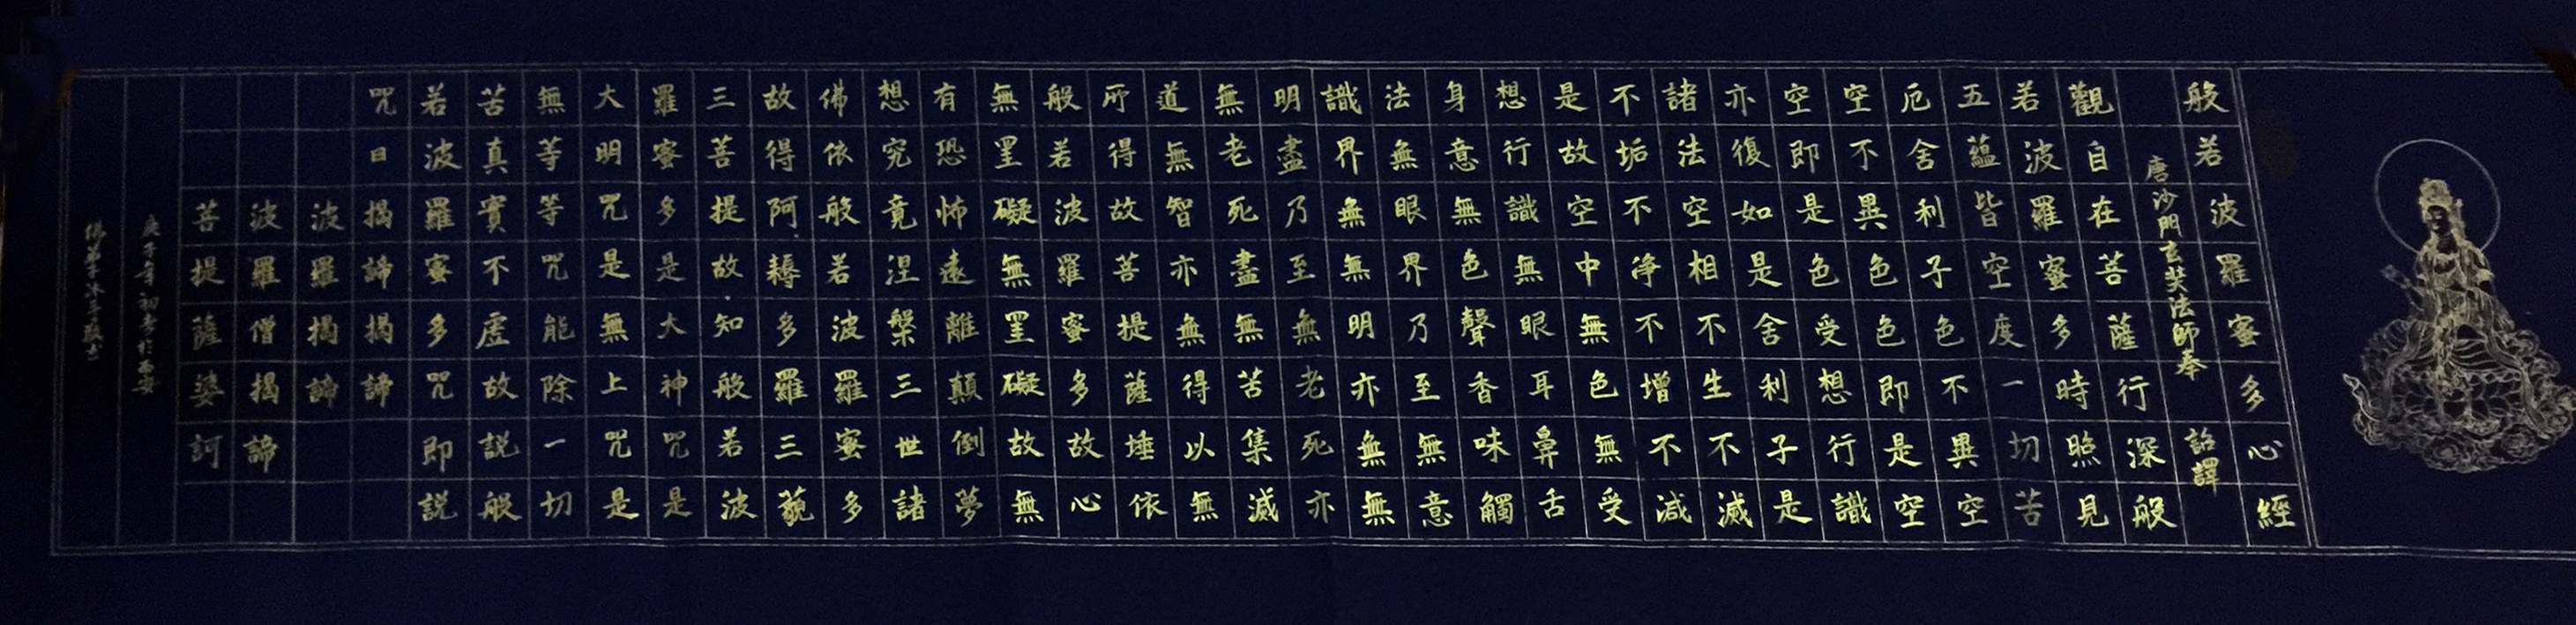 般若波羅蜜多心經
唐沙門玄奘法師奉 詔譯
觀自在菩薩行深般
若波羅蜜多時照見
五蘊皆空度一切苦
厄舍利子色不異空
空不異色色即是空
空即是色受想行識
亦復如是舍利子是
諸法空相不生不滅
不垢不淨不增不減
是故空中無色無受
想行識無眼耳鼻舌
身意無色聲香味觸
法無眼界乃至無意
識界無無明亦無無
明盡乃至無老死亦
無老死盡無苦集滅
道無智亦無得以無
所得故菩提薩埵依
般若波羅蜜多故心
無罣礙無罣礙故無
有恐怖遠離顛倒夢
想究竟涅槃三世諸
佛依般若波羅蜜多
故得阿耨多羅三藐
三菩提故知般若波
羅蜜多是大神咒是
大明咒是無上咒是
無等等咒能除一切
苦真實不虛故説般
若波羅蜜多咒即説
咒曰揭諦揭諦
波羅揭諦
波羅僧揭諦
菩提薩婆訶
庚子年初春於西安
佛弟子